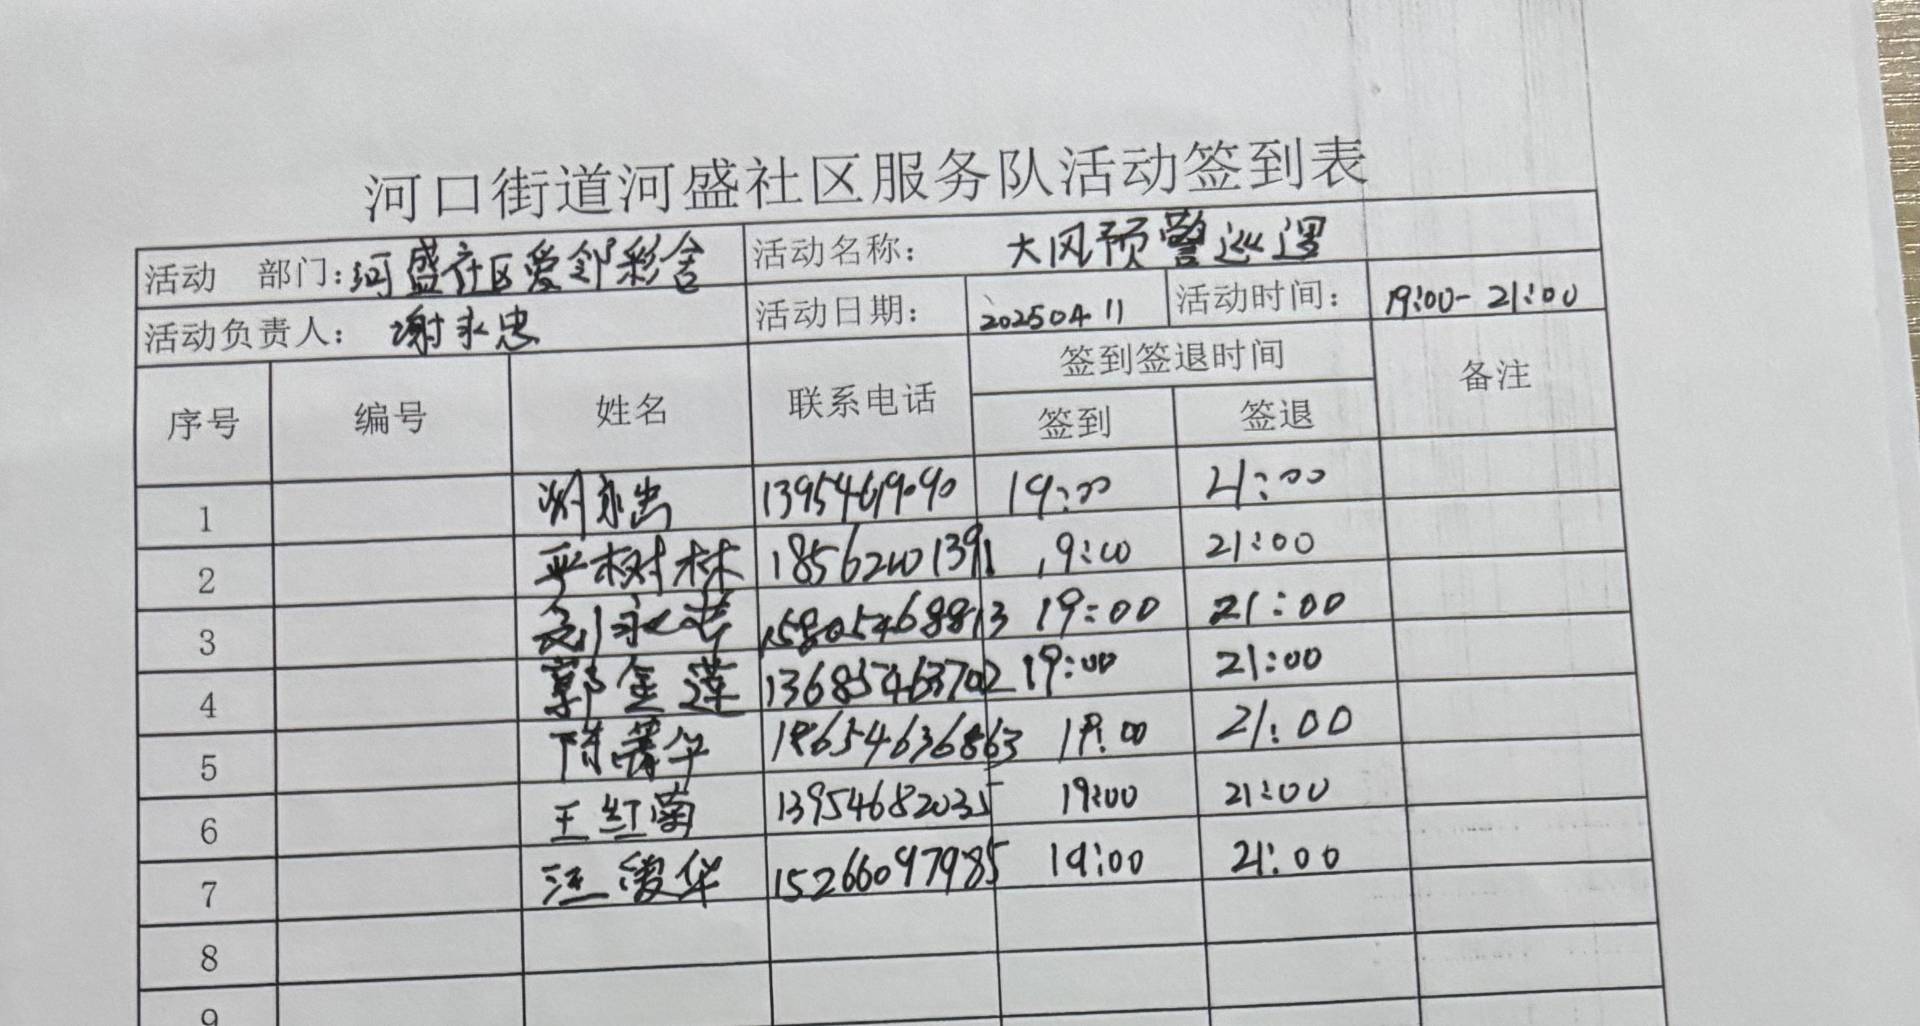 河口街道河盛社区服务队活动签到表
活动 部门: 河盛社区爱邻彩舍 活动名称: 大风预警巡逻
活动负责人: 谢永忠 活动日期: 20250411 活动时间: 19:00-21:00
序号 编号 姓名 联系电话 签到签退时间 备注
签到 签退
1 谢永忠 19:00 21:00
2 严树林 18562001391 19:00 21:00
3 15805468813 19:00 21:00
4 郭金莲 13685463702 19:00 21:00
5 18654636863 19:00 21:00
6 王红菊 13954682035 19:00 21:00
7 汪俊华 15266097985 19:00 21:00
8
9